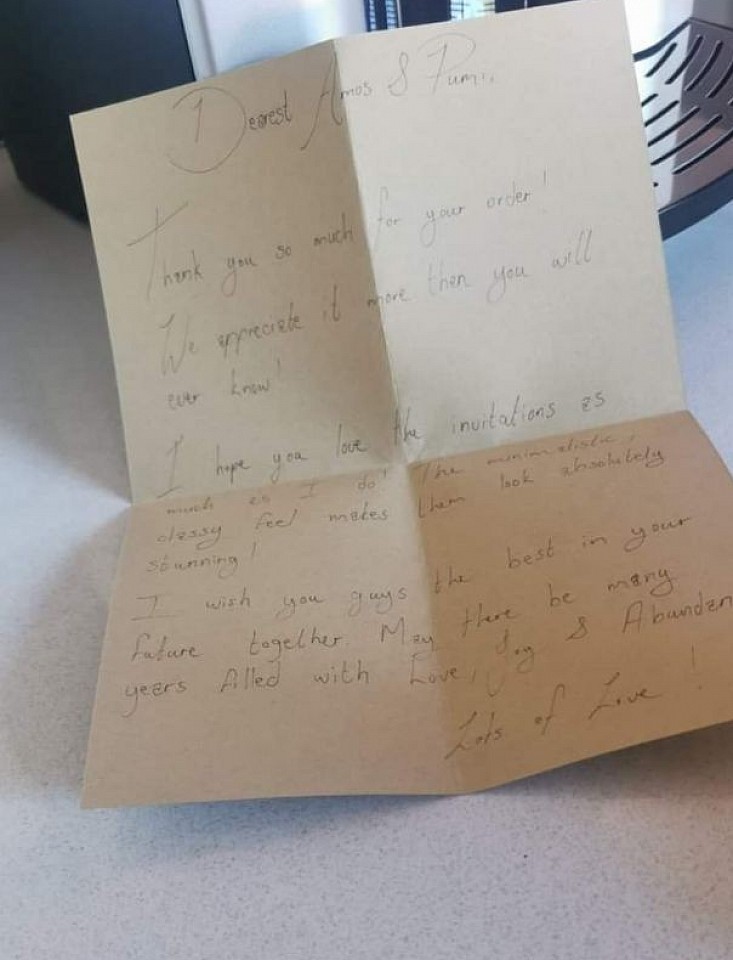 Dearest Amos & Pumi,
Thank you so much for your order!
We appreciate it more then you will
ever know!
I hope you love the invitations as
much as I do! The minimalistic,
classy feel makes them look absolutely
stunning!
I wish you guys the best in your
future together. May there be many
years filled with Love, Joy & Abundan
Lots of Love!